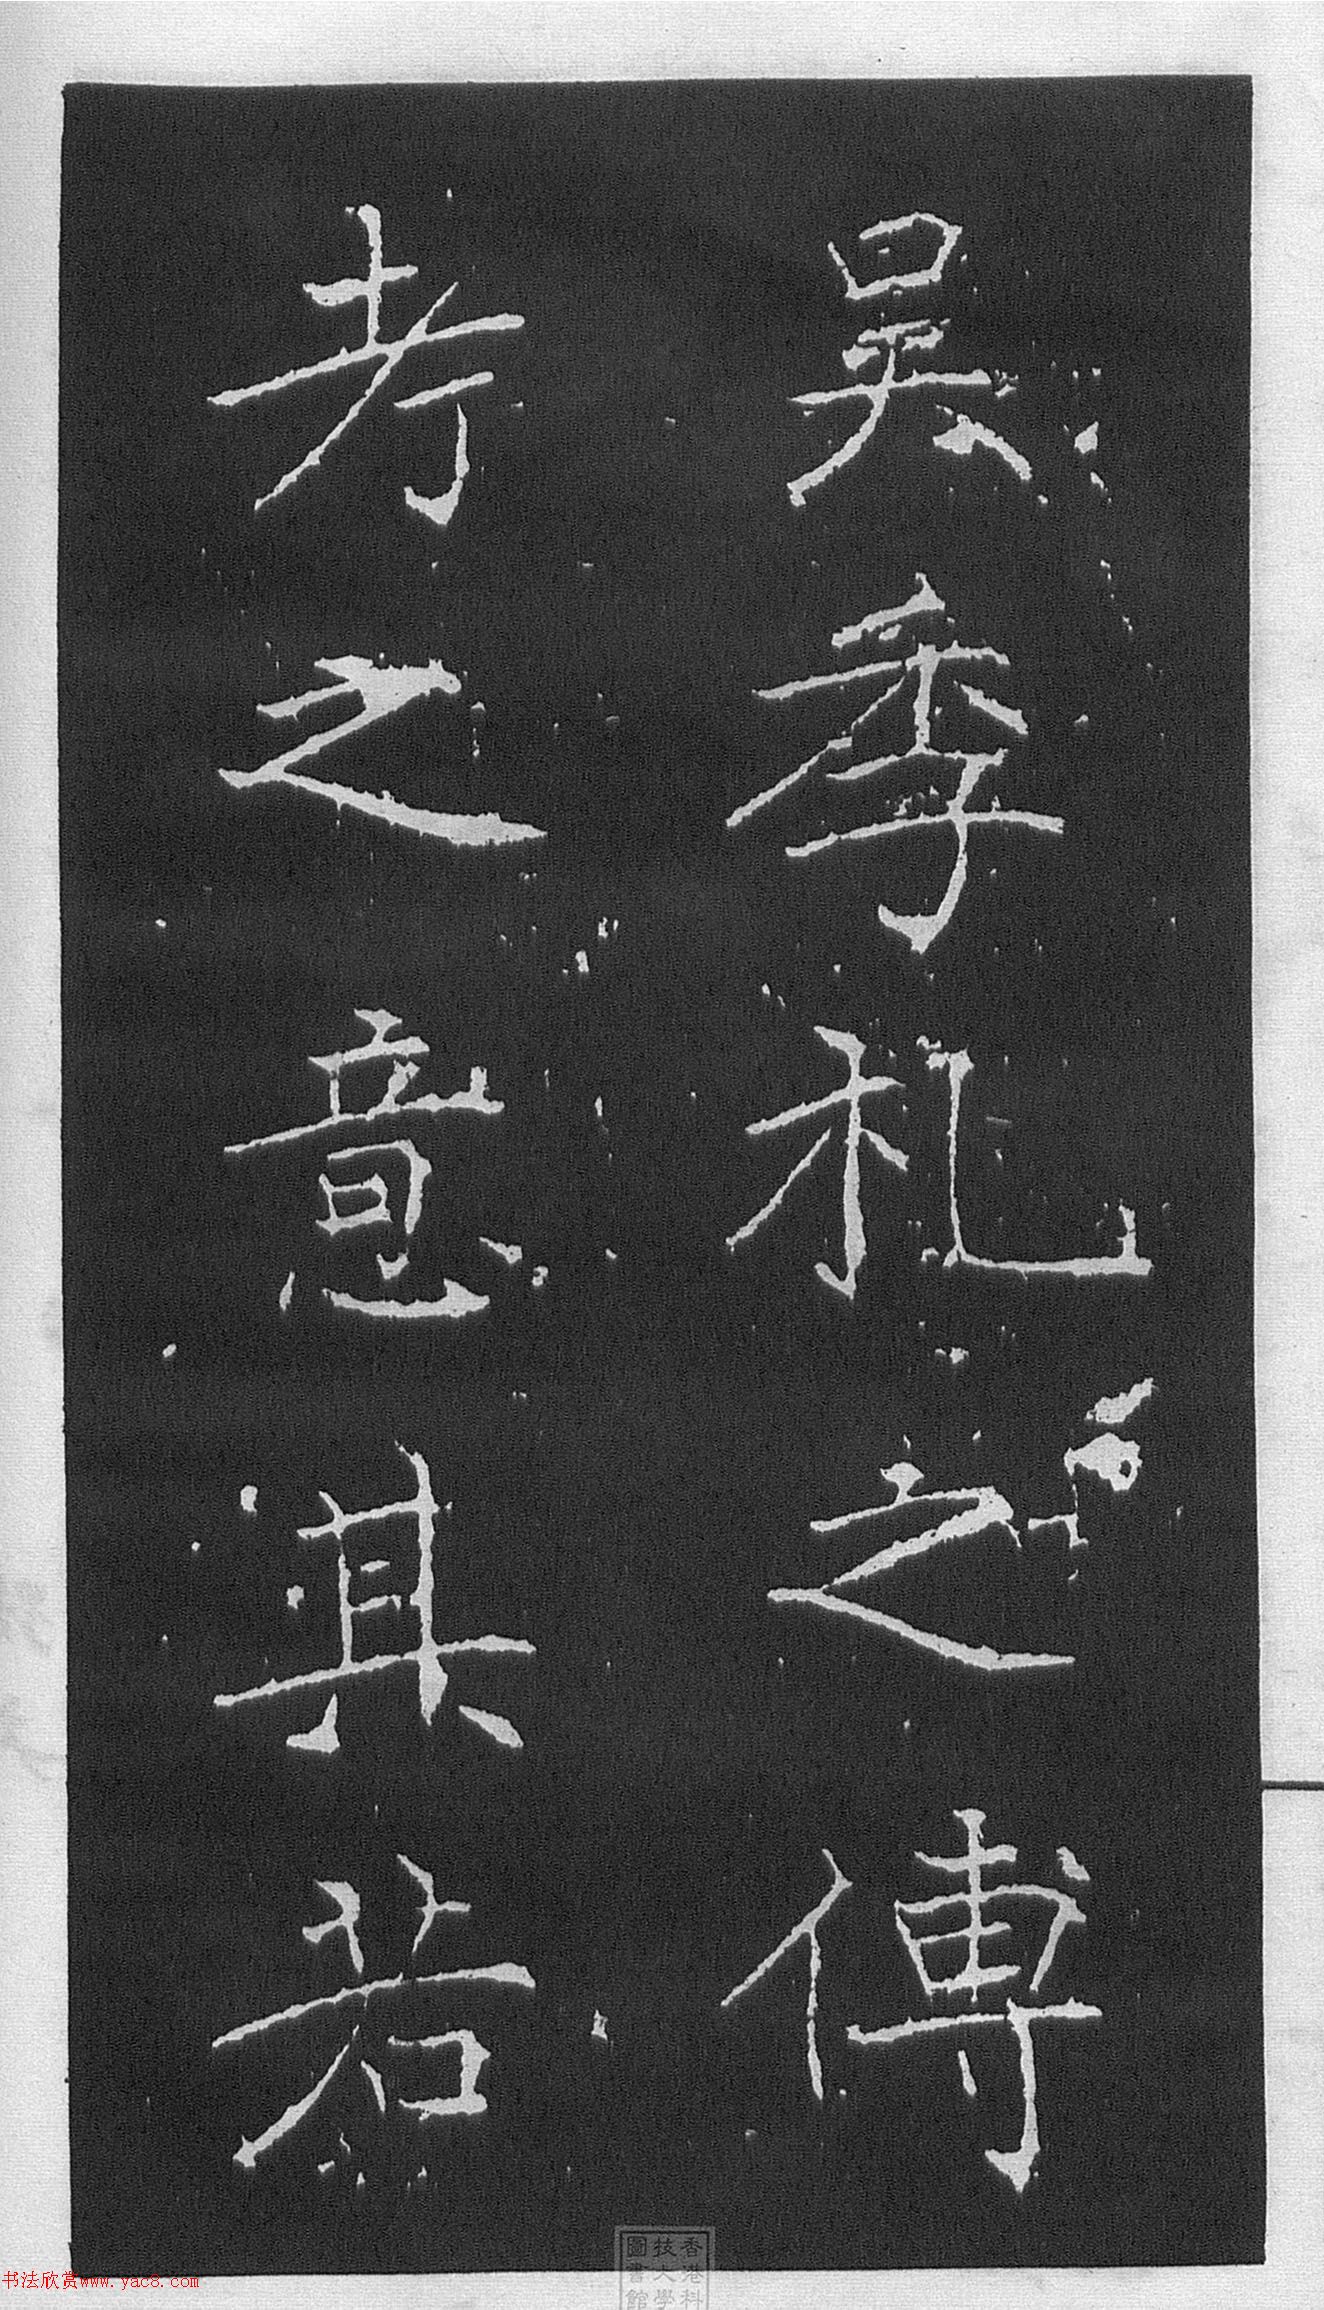 吳季札之傅
考之意其若
香港科
技大學
圖書館
书法欣赏www.yac8.com